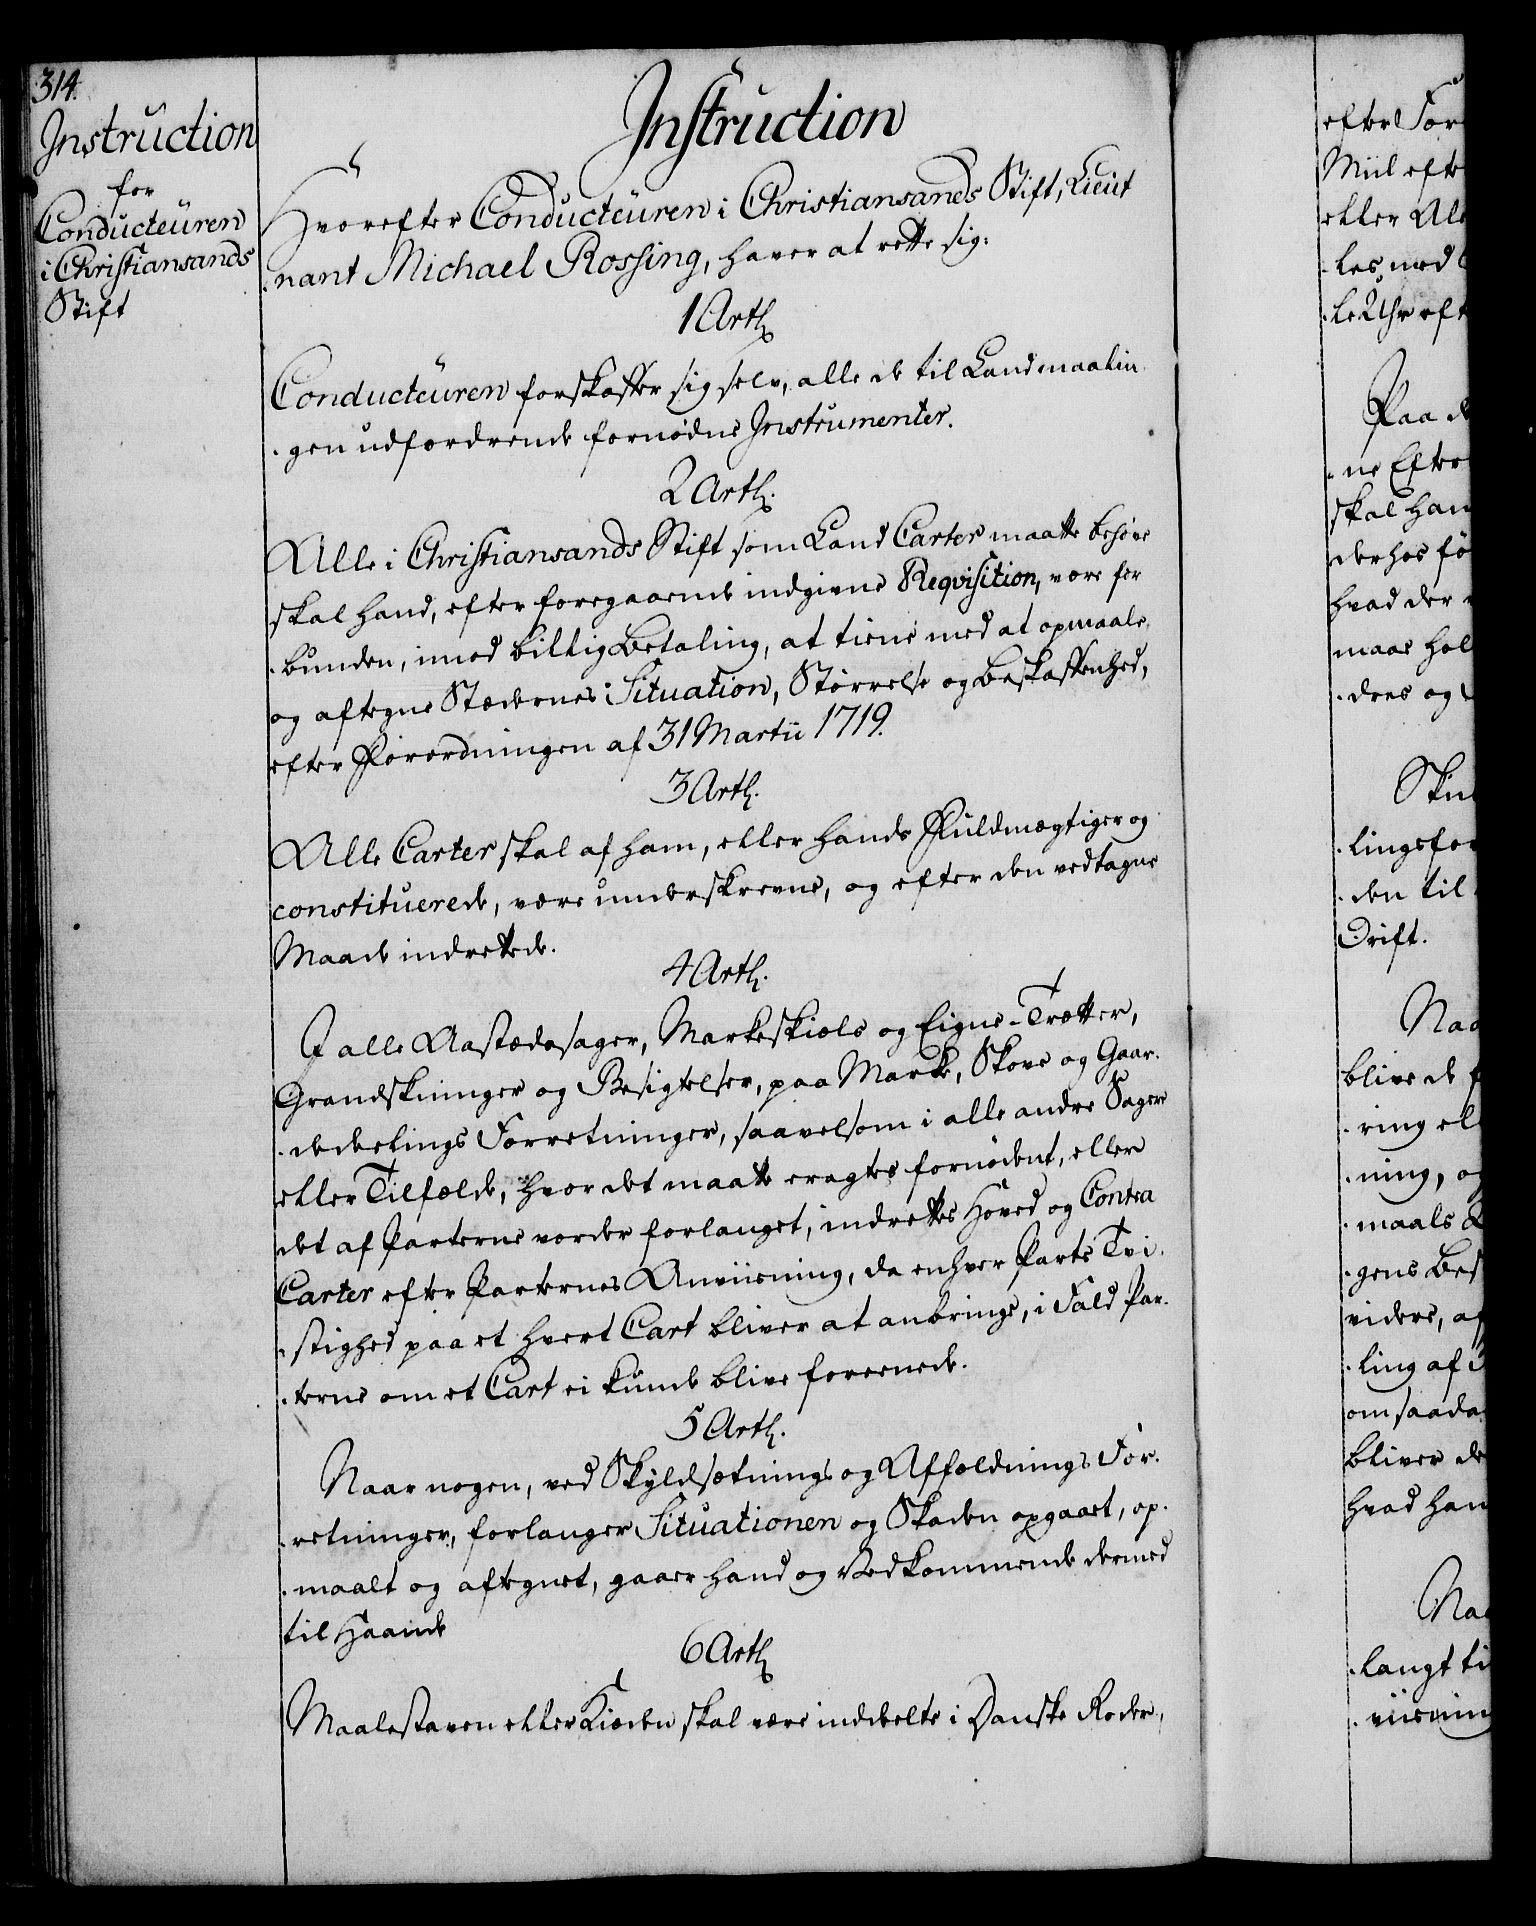 314.
Instruction
for
Conducteuren
i Christiansands
Stift
Instruction
Hvorefter Conducteuren i Christiansands Stift, Lieut
nant Michael Rossing, haver at rette sig:
1 Artl.
Conducteuren forskaffer sig selv, alle de til Landmaalin
gen udfordrende fornødne Instrumenter.
2 Artl.
Alle i Christiansands Stift som Land Carter maatte behøve
skal hand, efter foregaaende indgivne Reqvisition, være for
bunden, imod billig Betaling, at tiene med at opmaale
og aftegne Stædernes Situation, Størrelse og Beskaffenhed,
efter Forordningen af 31 Martii 1719.
3 Artl.
Alle Carter skal af ham, eller hands Fuldmægtiger og
constituerede, være underskrevne, og efter den vedtagne
Maade indrettede.
4 Artl.
I alle Aastædssager, Markeskiels og Eigne-Trætter,
Grandskninger og Besigtelser, paa Mark, Skove og Gaar-
dedeelings Forretninger, saavelsom i alle andre Sager
eller Tilfælde, hvor det maatte eragtes fornødent, eller
det af Parterne vorder forlanget, indrettes Hoved og Contra
Carter efter Parternes Anviisning, da enhver Parts Tvi-
stighed paa et hvert Cart bliver at anbringe, i Fald Par-
terne om et Cart ei kunde blive foreenede.
5 Artl.
Naar nogen, ved Skyldsætnings og Affældnings For-
retninger, forlanger Situationen og Skaden opgaaet, op-
maalt og aftegnet, gaaer hand og Vedkommende dermed
til Haande
6 Artl.
Maalestaven eller Kiæden skal være inddeelte i Danske Roder,
efter For
Miil efte
eller Al
les med
le Uhr eft
Paa d
ne Efter
skal han
derhos fø
hvad der
maae hol
dres og
lingsfor
den til
Drift.
Naa
blive de
ring el
ning, og
maals
gens Bes
videre, af
ling af
om saada
bliver de
hvad han
Naa
langt ti
viisning